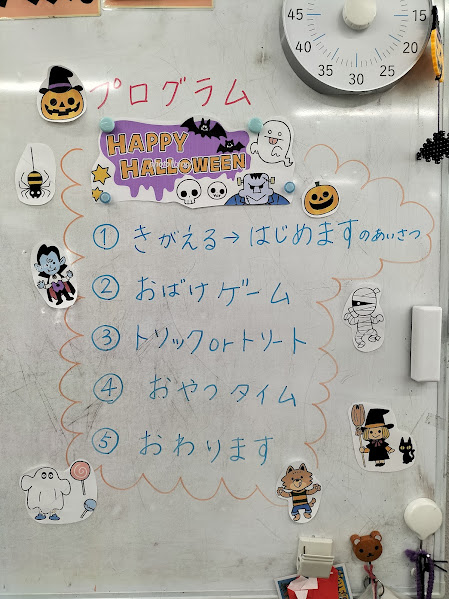 45
15
40
20
35
30
25
プログラム
HAPPY
HALLOWEEN
① きがえる→はじめますのあいさつ
② おばけゲーム
③ トリックorトリート
④ おやつタイム
⑤ おわります